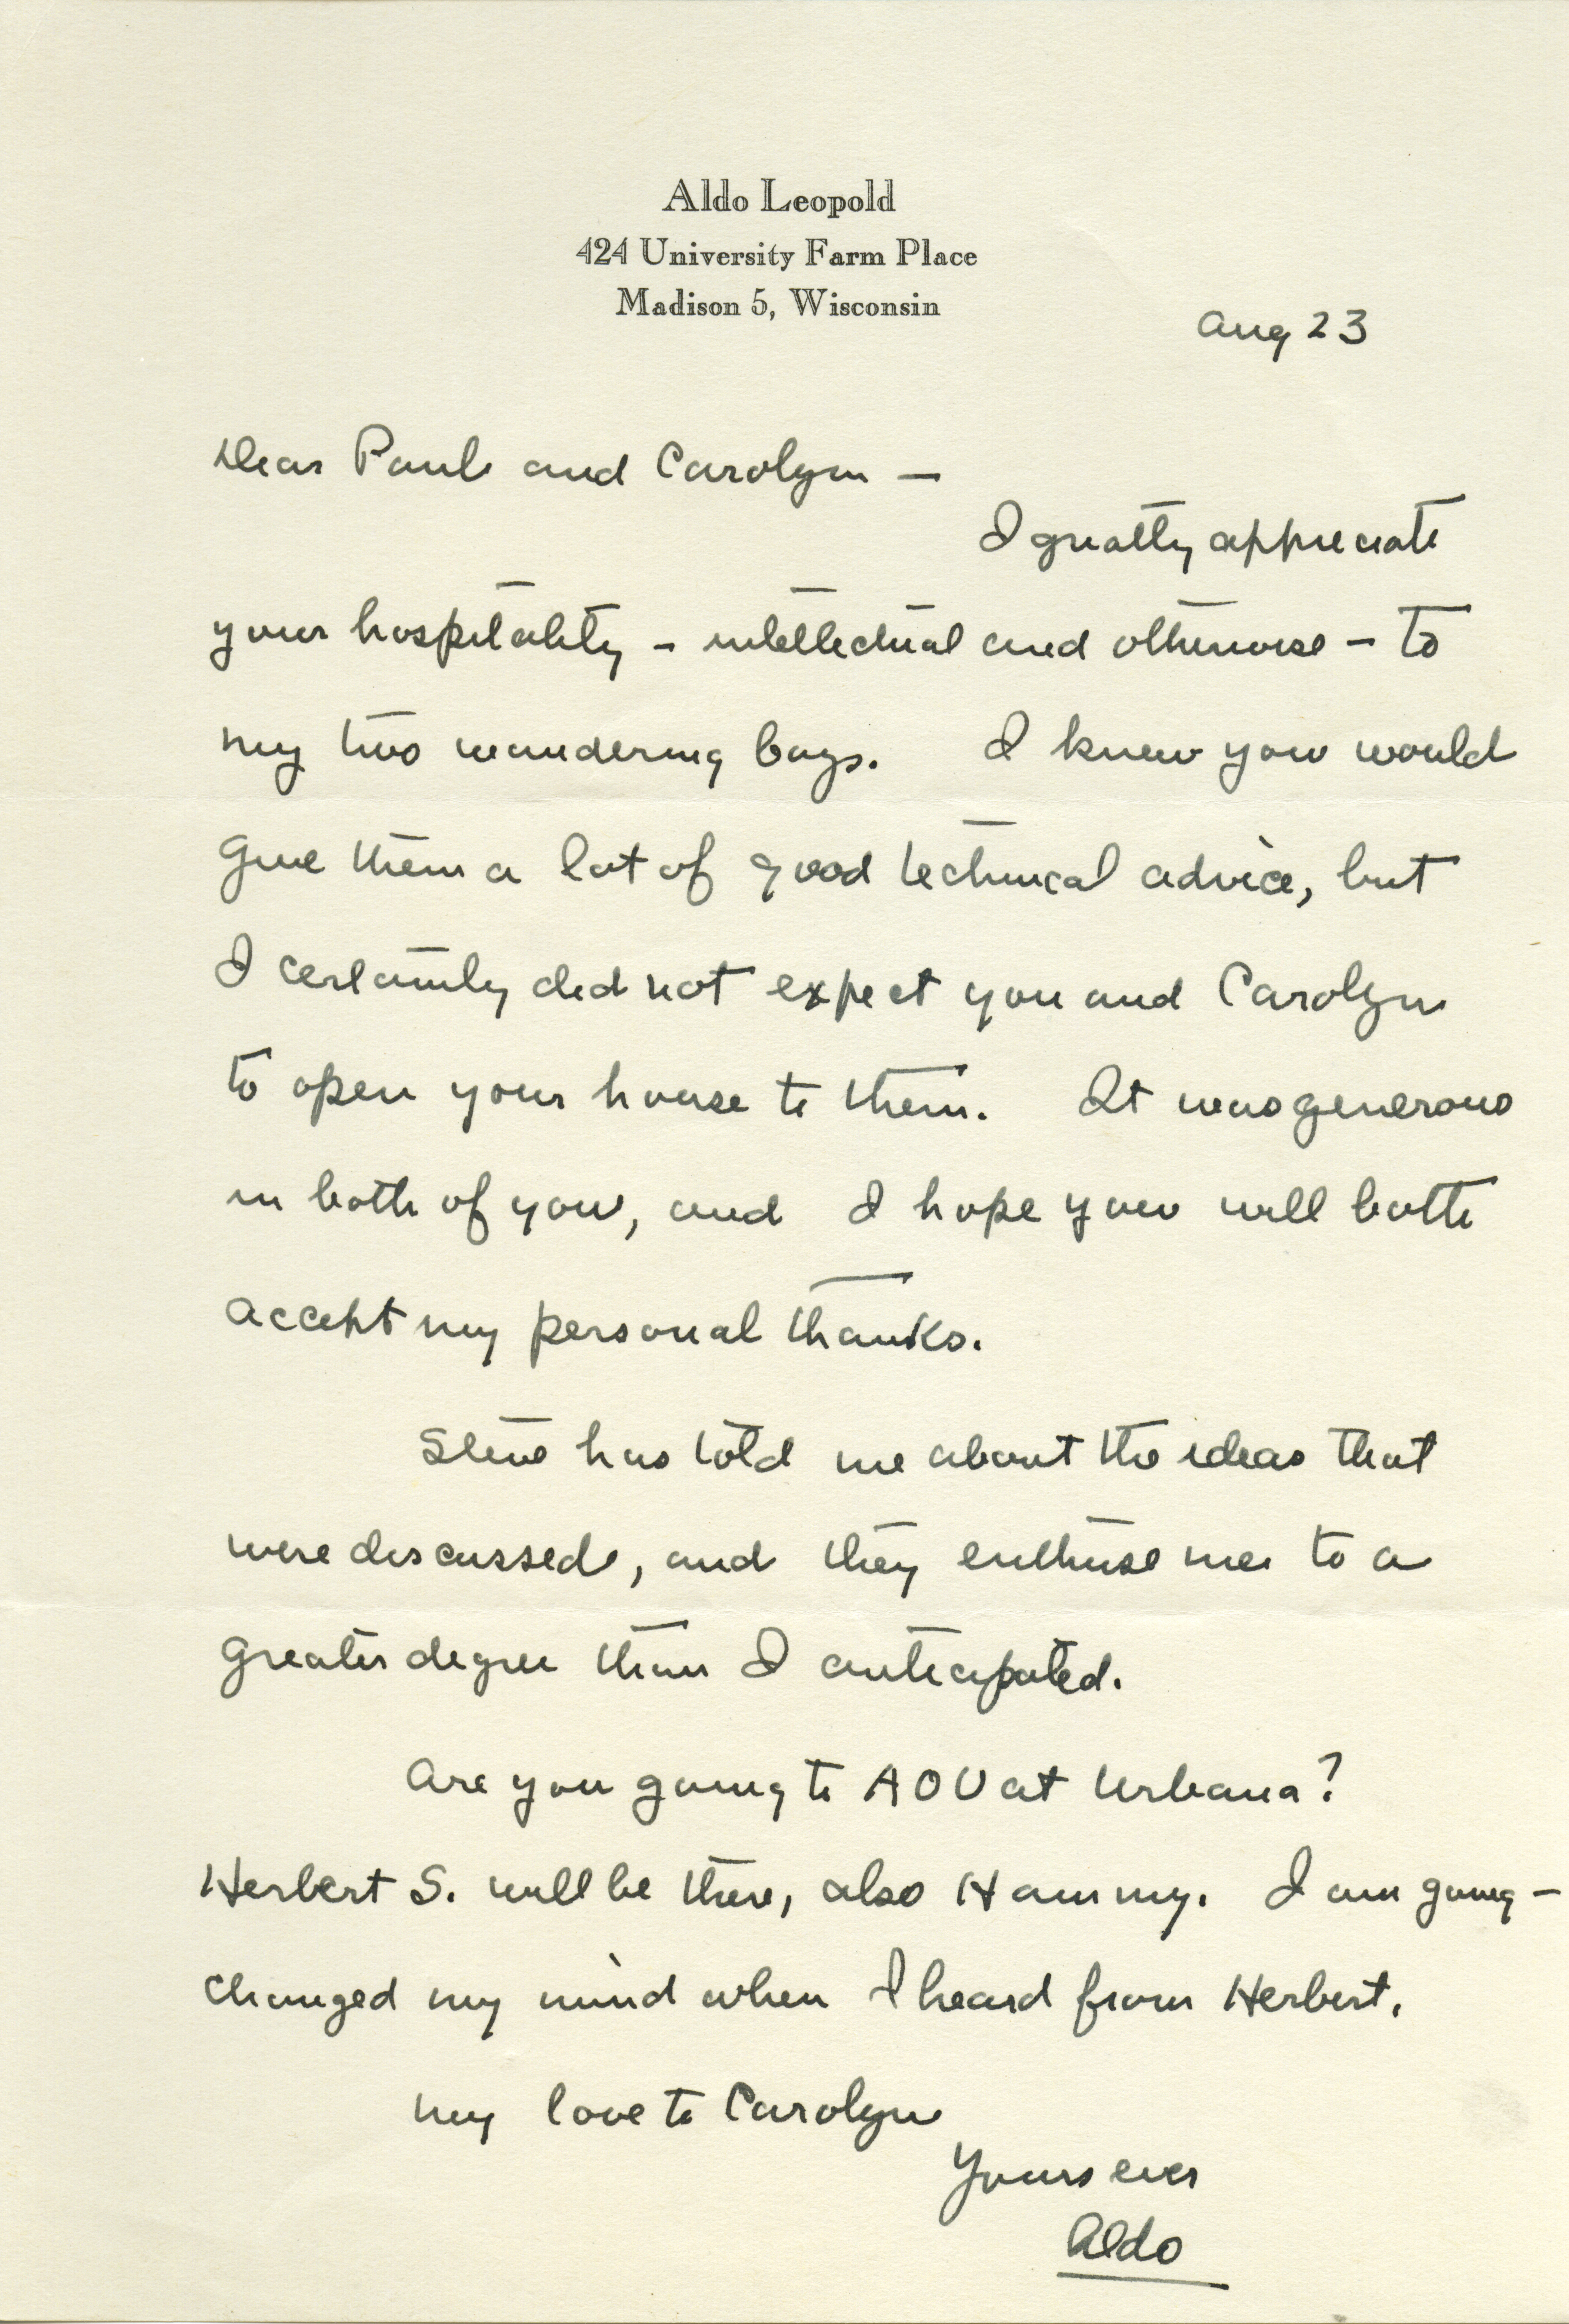 Aldo Leopold
424 University Farm Place
Madison 5, Wisconsin
Aug 23
Dear Paul and Carolyn —
I greatly appreciate
your hospitality - intellectual and otherwise - to
my two wandering boys. I knew you would
give them a lot of good technical advice, but
I certainly did not expect you and Carolyn
to open your house to them. It was generous
in both of you, and I hope you will both
accept my personal thanks.
Steve has told me about the ideas that
were discussed, and they enthuse me to a
greater degree than I anticipated.
Are you going to AOU at Urbana?
Herbert S. will be there, also Hammy. I am going —
changed my mind when I heard from Herbert.
My love to Carolyn
Yours ever
Aldo